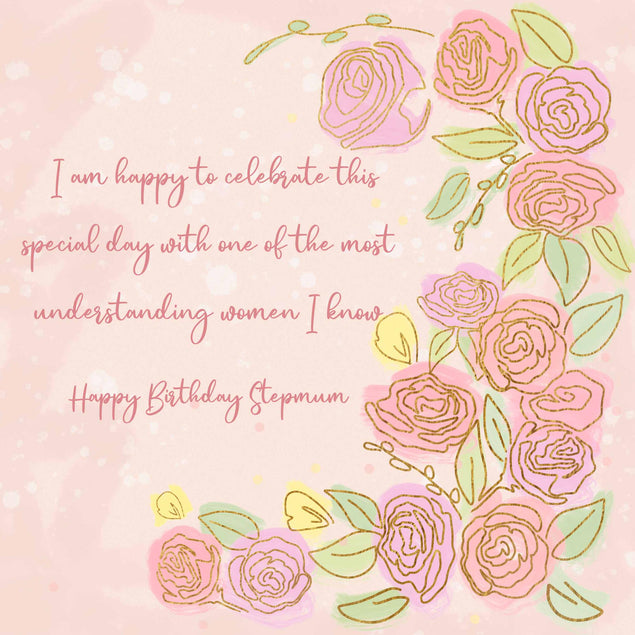 I am happy to celebrate this
special day with one of the most
understanding women I know
Happy Birthday Stepmum